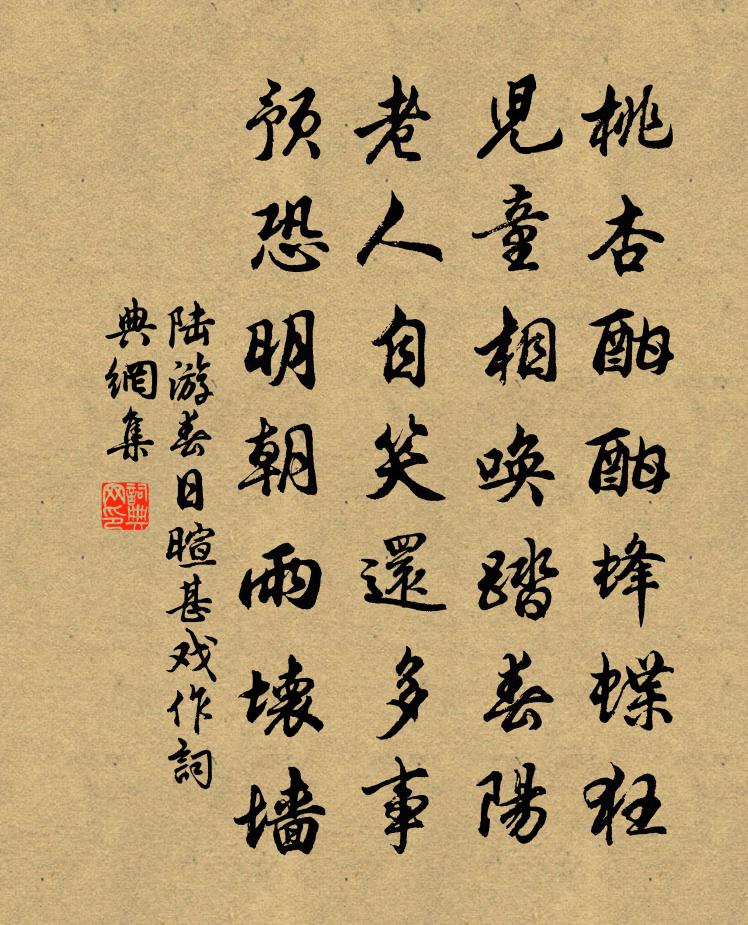 桃杏酣酣蜂蝶狂
兒童相喚踏春陽
老人自笑還多事
預恐明朝雨壞墙
陆游春日暄甚戏作詞
典網集
詞典
网印